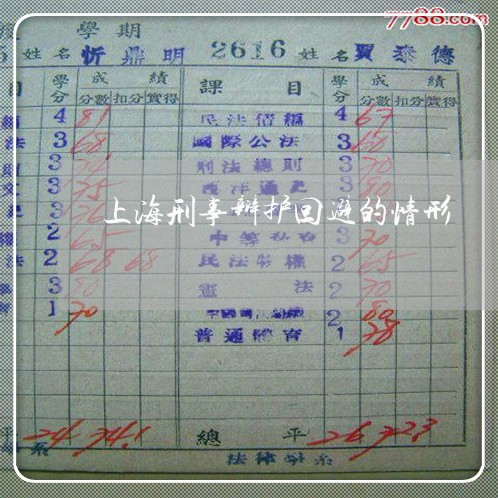 7788.com
學期
姓名 忻鼎明 2616 姓名 賈泰德
目 學分 成績 課目 學分 成績
分數 扣分 實得 分數 扣分 實得
4 81 民法債編 4 67
法 3 68 國際公法 3 60
3 刑法總則 3 70
文 3 75 西洋通史 3 80
上海刑事辩护回避的情形
2 65 3 70
法 2 68 68 民法物權 2 65
3 80 憲法 2 70
育 1 70 2 80
普通體育 1 78
平 24 74.1 總平 26 72.3
系 法律學系